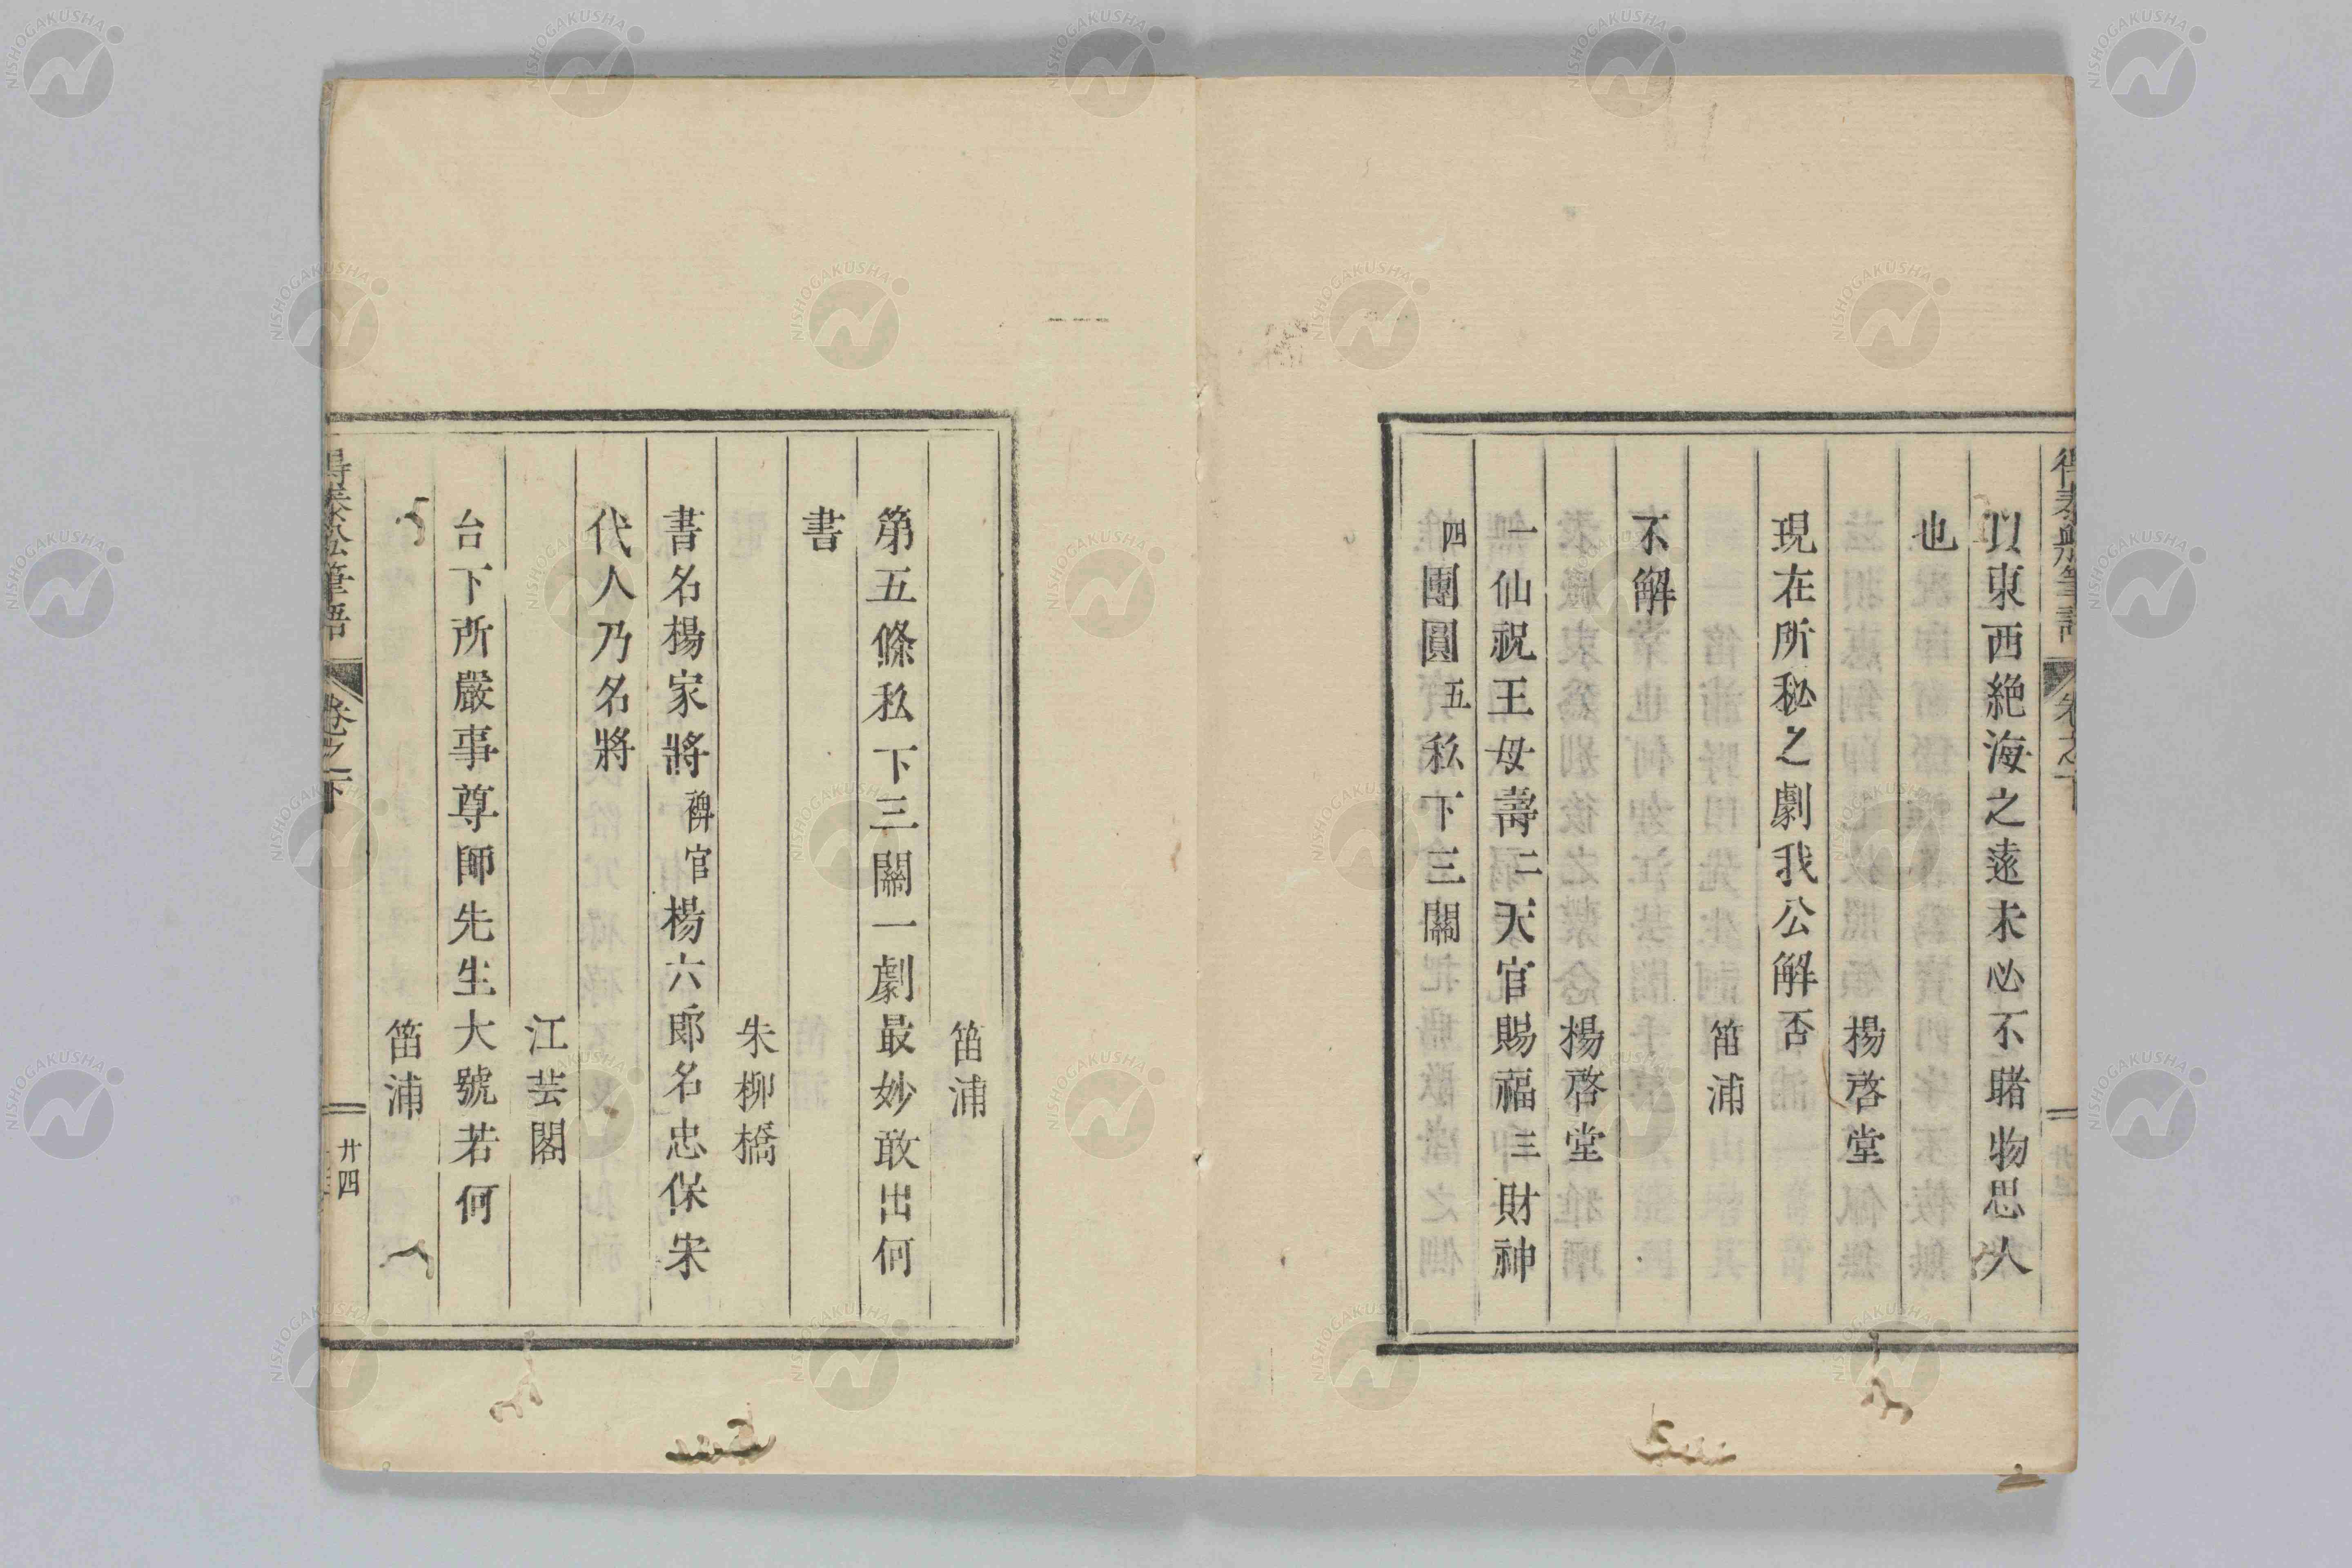 以東西絕海之遠未必不睹物思人
也
楊啓堂
現在所秘之劇我公解否
笛浦
不解
楊啓堂
一仙祝王母壽二天官賜福三財神
四團圓五私下三關
笛浦
第五條私下三關一劇最妙敢出何
書
朱柳橋
書名楊家將稗官楊六郎名忠保宋
代人乃名將
江芸閣
台下所嚴事尊師先生大號若何
笛浦
卷之下
廿四
NISHOGAKUSHA